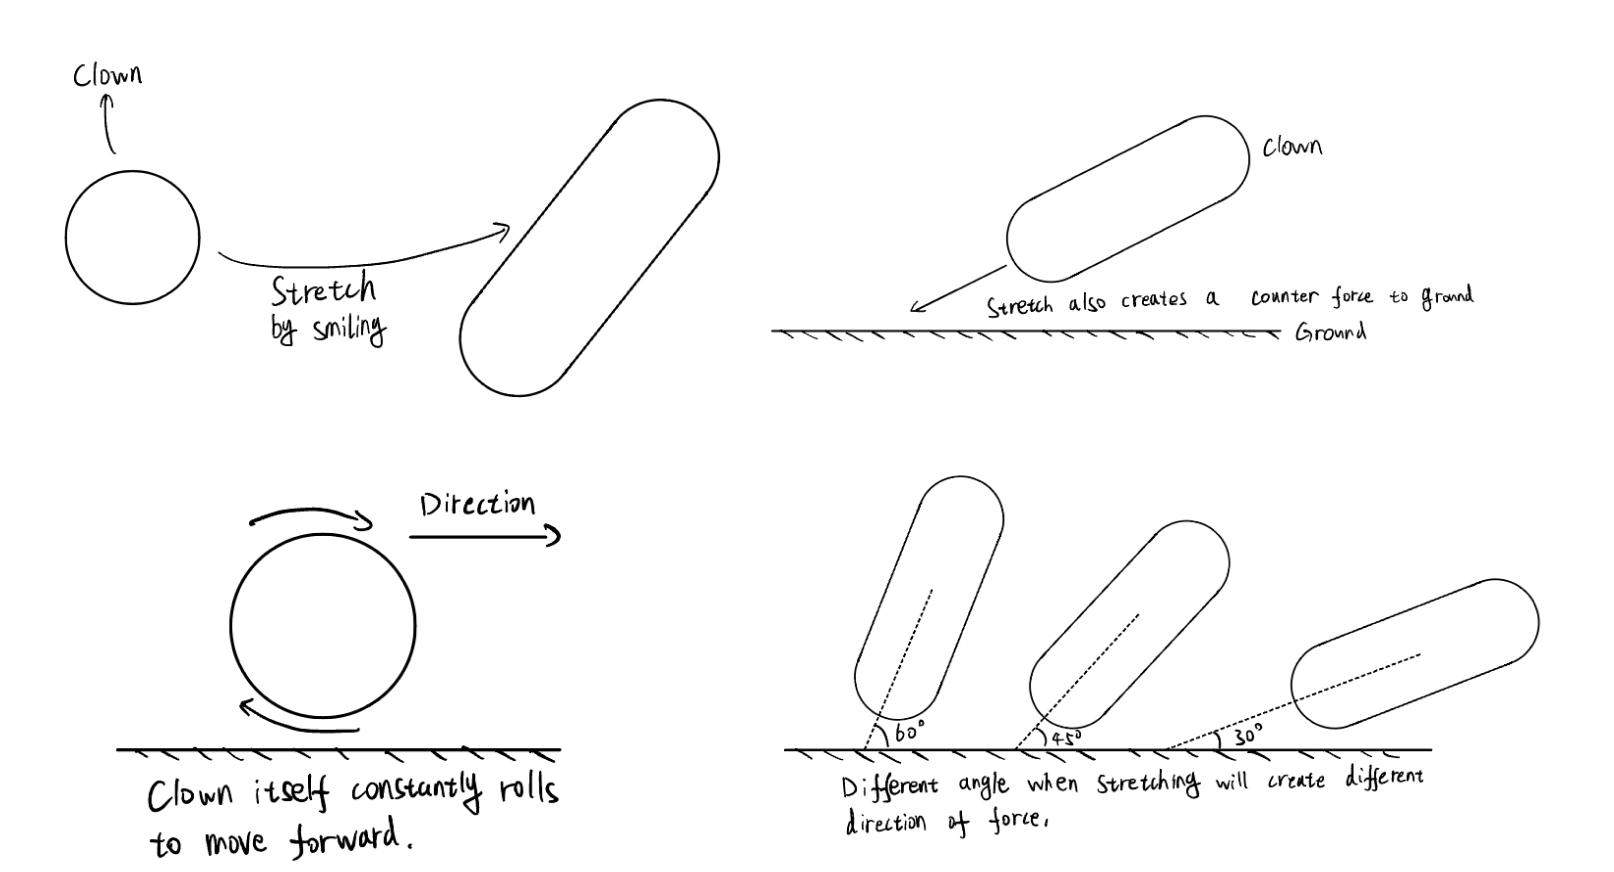 Clown
Stretch
by smiling
Clown
Stretch also creates a counter force to ground
Ground
Direction
Clown itself constantly rolls
to move forward.
60°
45°
30°
Different angle when stretching will create different
direction of force.